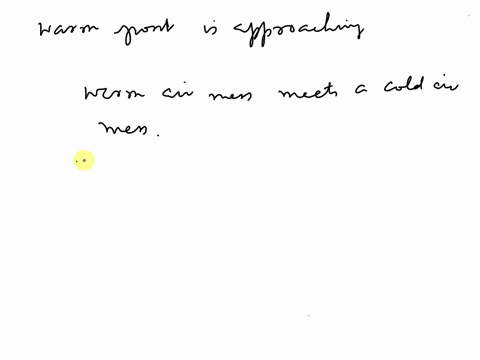 warm front is approaching
warm air mass meets a cold air
mass.